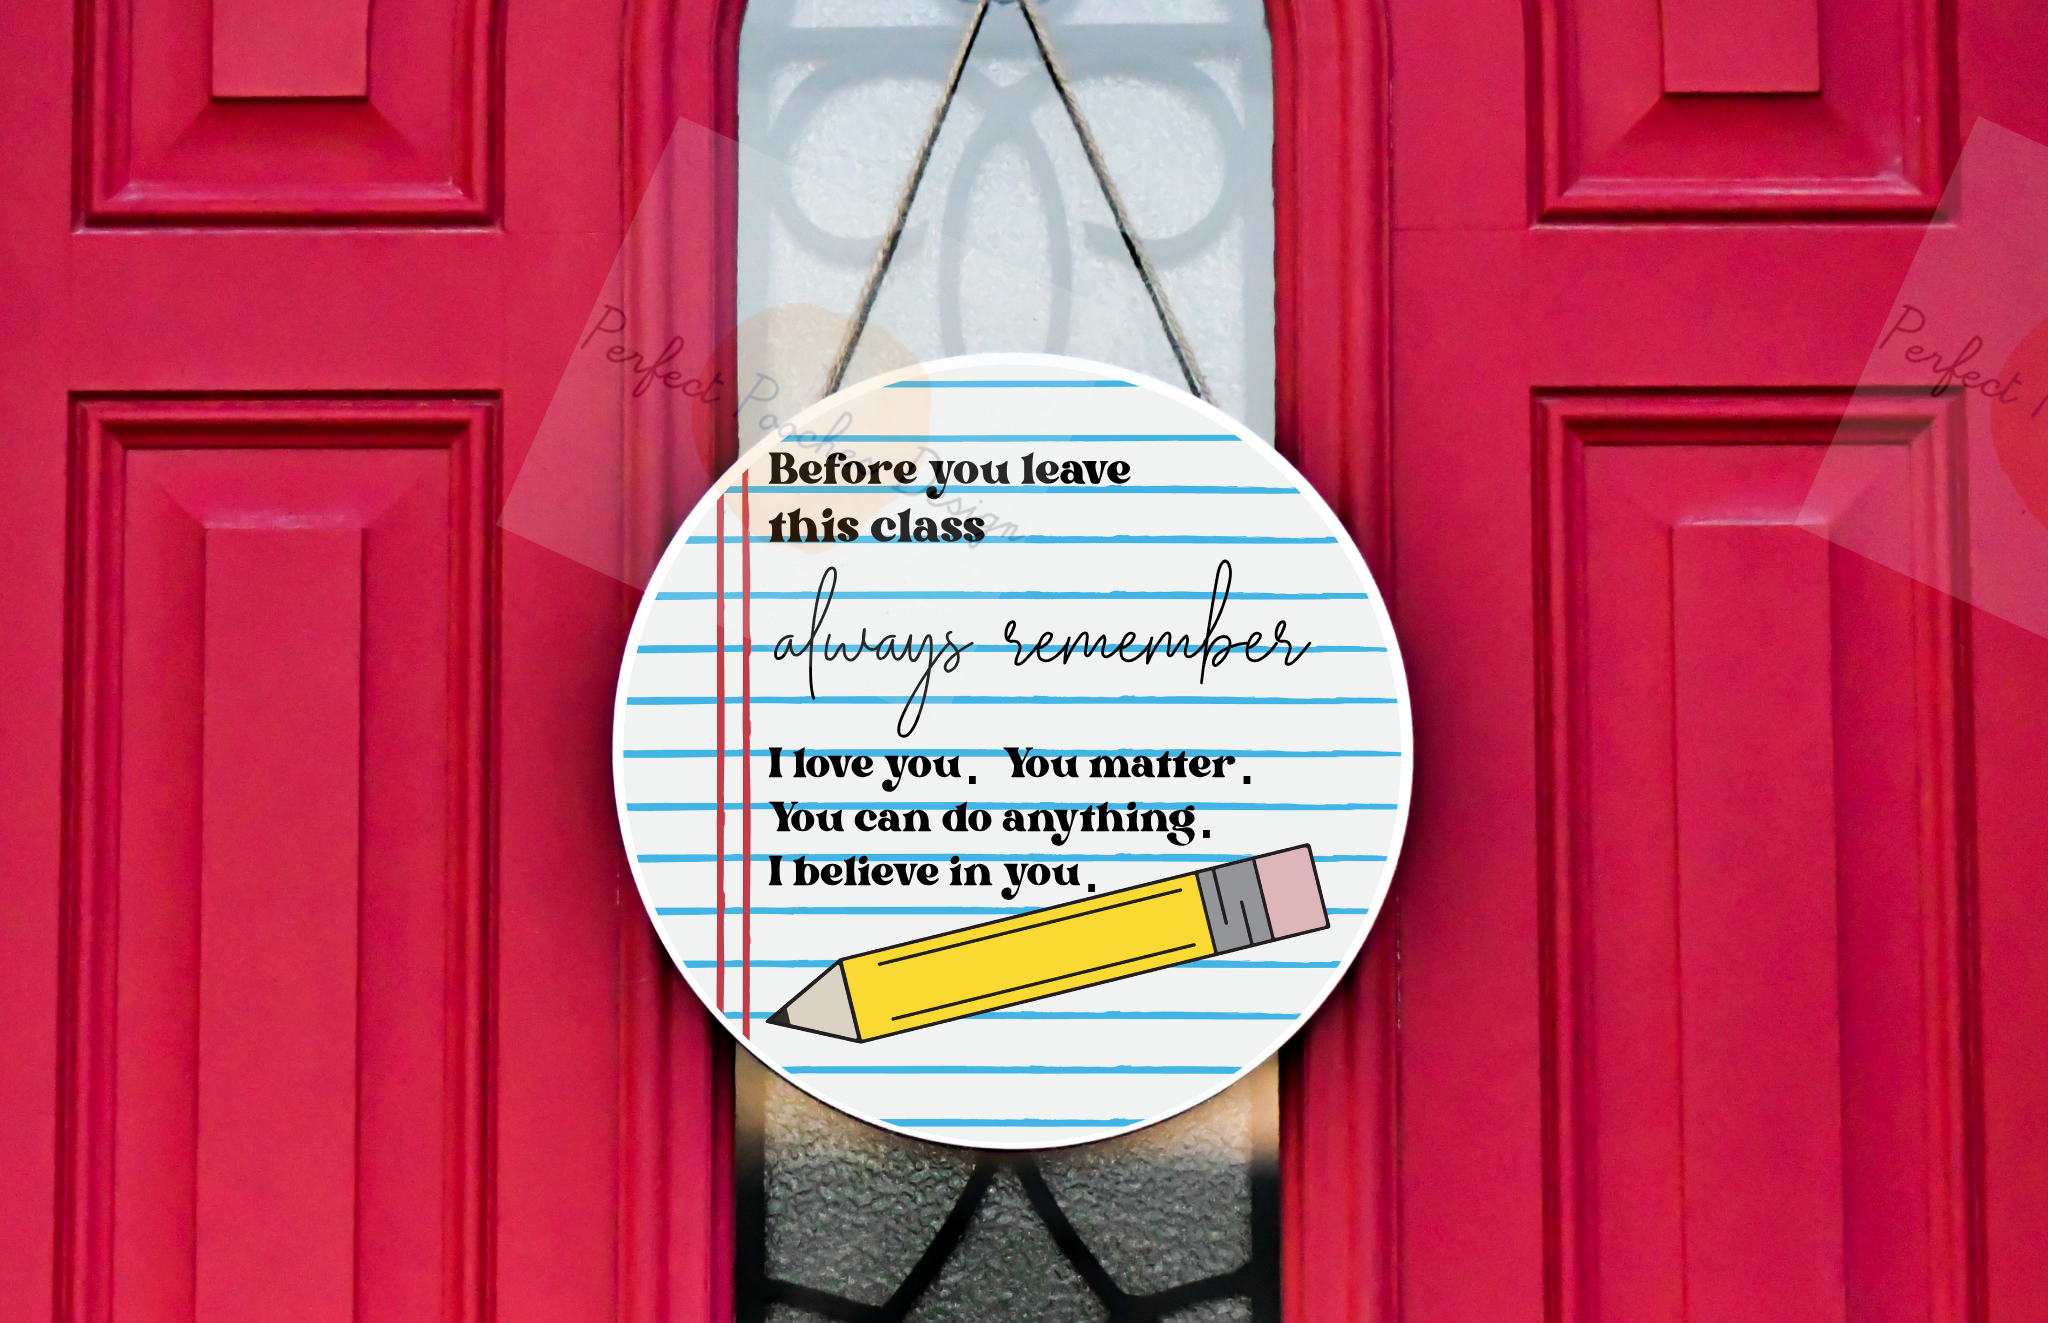 Perfect Pooches Design
Perfect
Before you leave
this class
always remember
I love you. You matter.
You can do anything.
I believe in you.